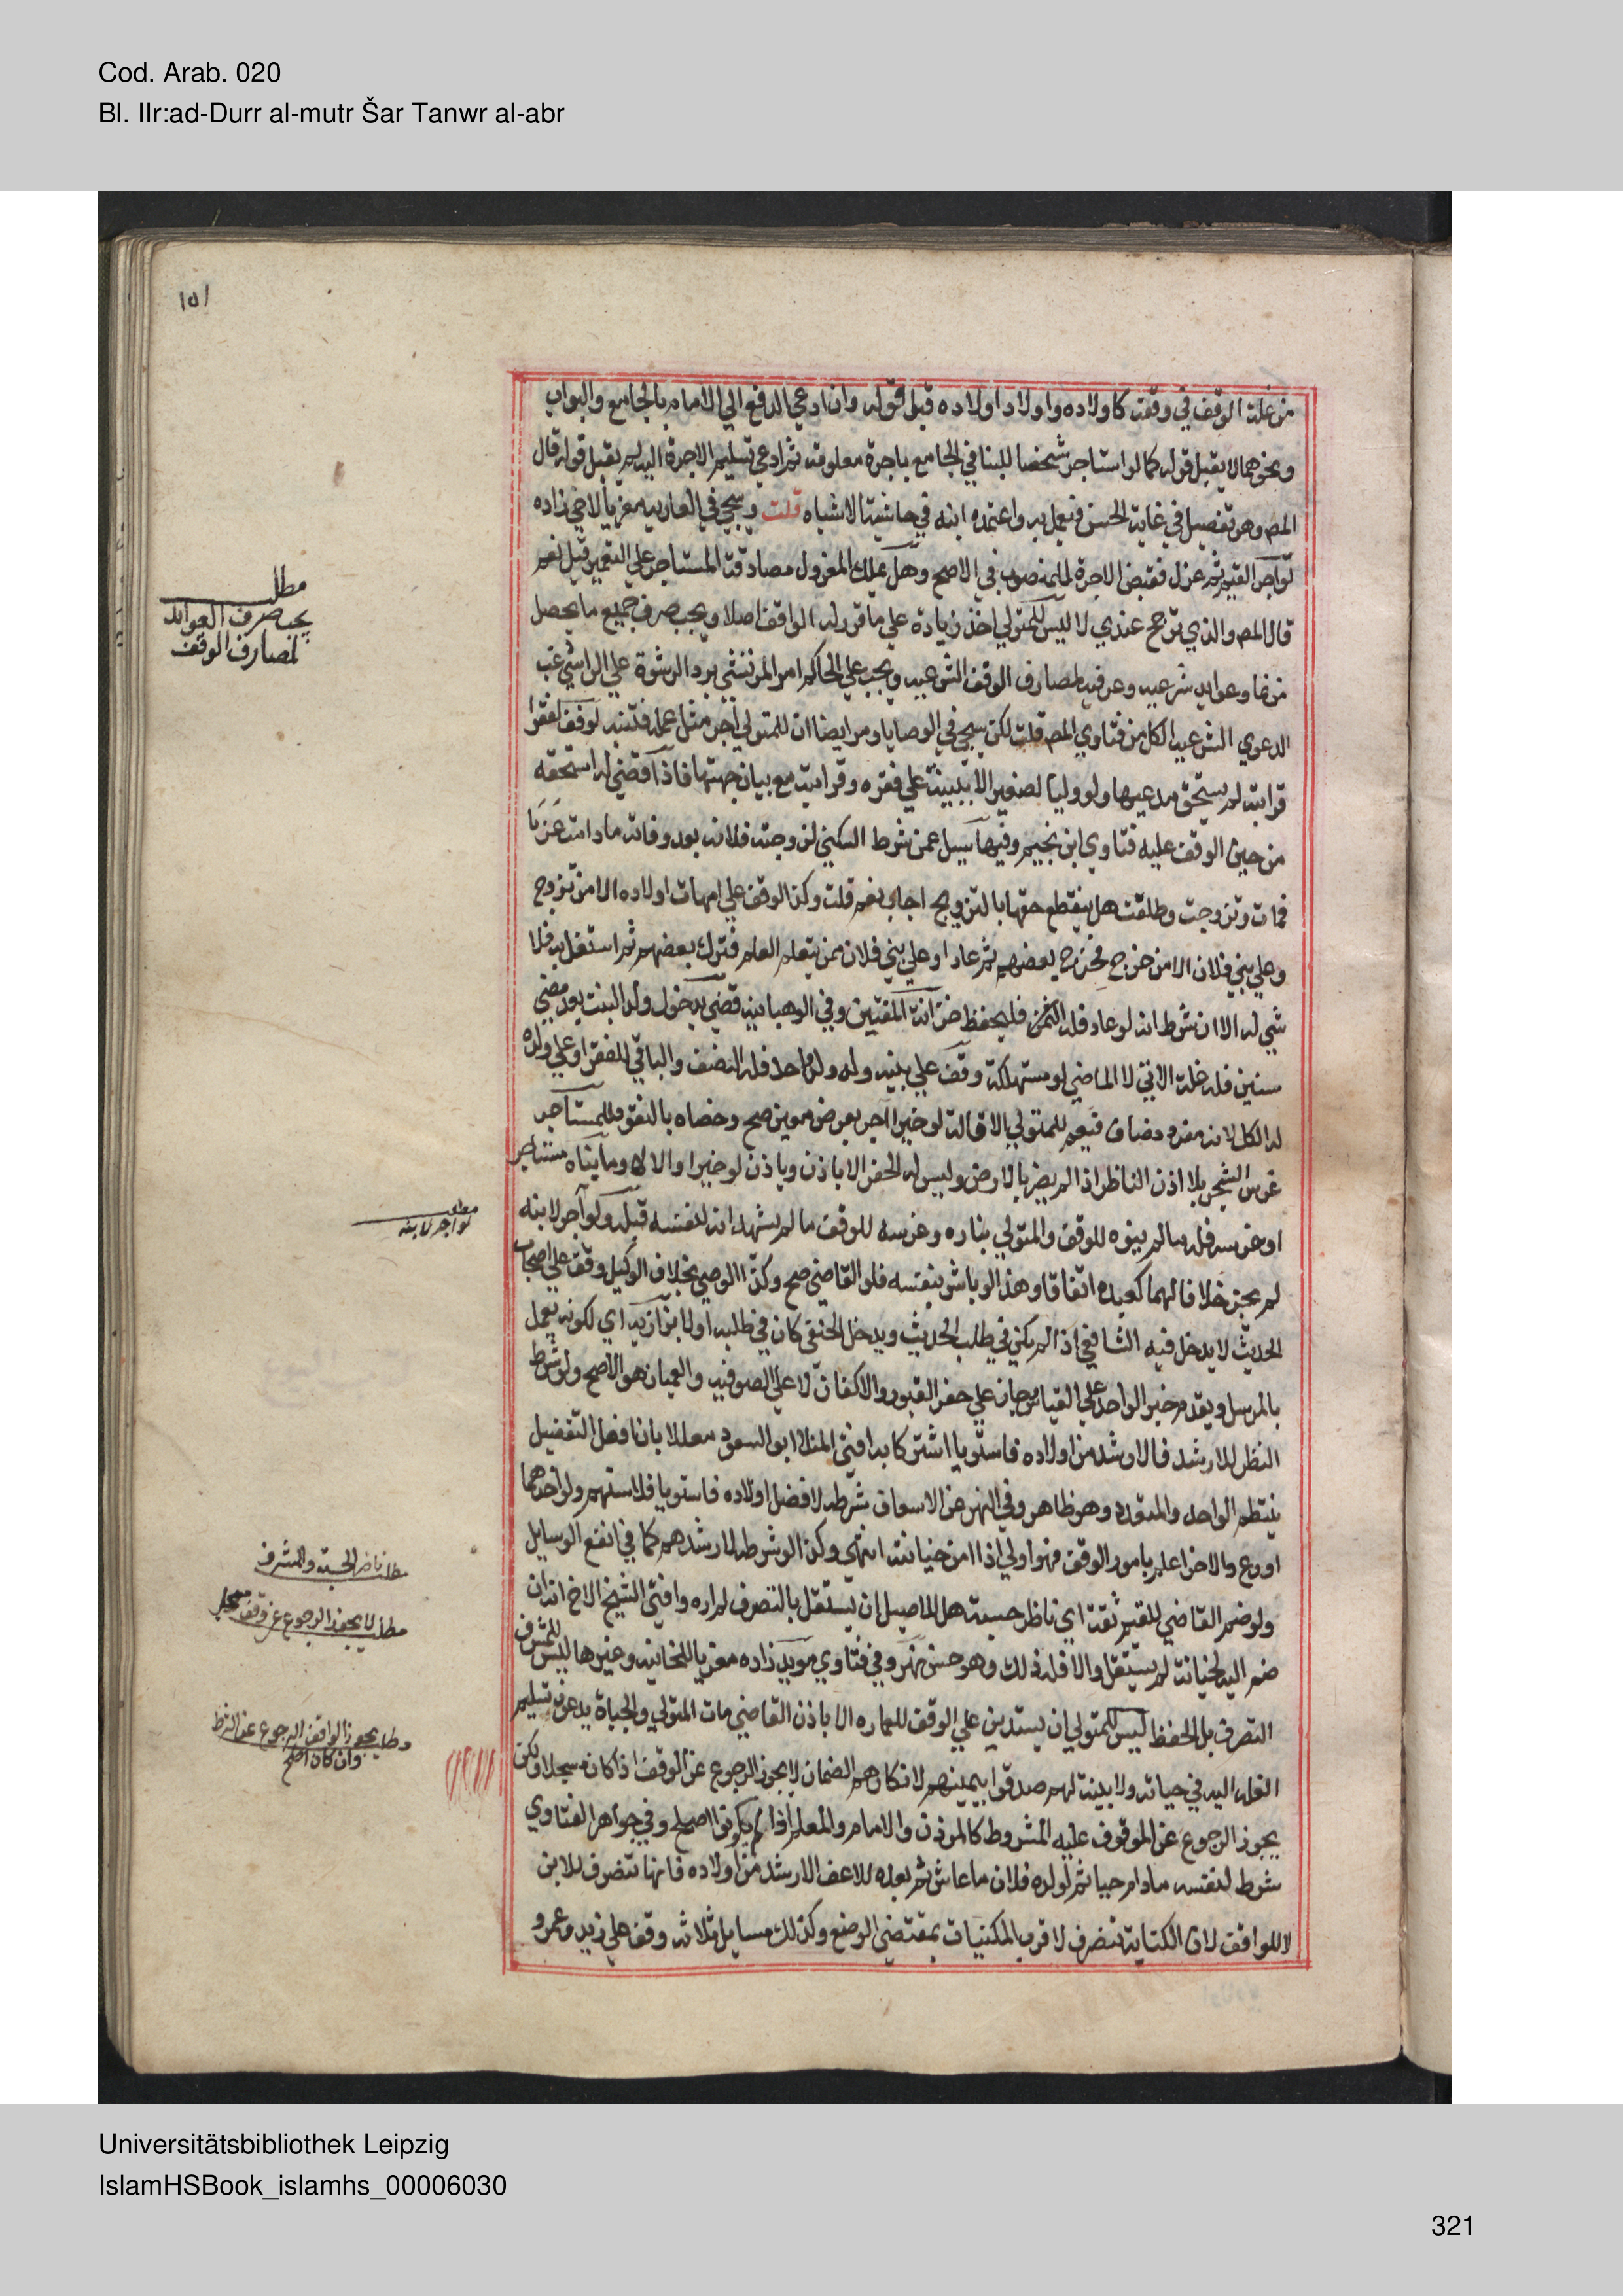 Cod. Arab. 020
Bl. IIr:ad-Durr al-mutr Šar Tanwr al-abr
١٥١
من غلة الوقف في وقفت كاولاده واولاد اولاده قبل قوله وان ادعي الدفع الي الامام بالجامع والبواب
ونحوهما لا يقبل قوله كما لو استاجر شخصا للبنا في الجامع باجرة معلومة ثم ادعي تسليم الاجرة اليه لم يقبل قوله قال
المص وهو تفصيل في غاية الحسن فيعمل به واعتمده ابنه في حاشية الاشباه قلت وسيجي في العارية معزيا لاخي زاده
لو آجر القيم ثم عزل فقبض الاجرة للمنصوب في الاصح وهل يملك المعزول مصادقة المستاجر علي التعمير قيل نعم
قال المص والذي ترجح عندي لا ليس للمتولي اخذ زيادة علي ما قرر له الواقف اصلا ويجب صرف جميع ما يحصل
من نما وعوايد شرعيه وعرفيه لمصارف الوقف الشرعيه ويجب علي الحاكم امر المرتشي برد الرشوة علي الراشي غب
الدعوي الشرعيه الكل من فتاوي المص قلت لكن سيجي في الوصايا ومر ايضا ان للمتولي اجر مثل عمله فتنبه لو وقف لفقرا
قرابته لم يستحق مدعيها ولو وليا لصغير الا ببينة علي فقره وقرابته مع بيان جهتها فاذا قضي له استحقه
من حين الوقف عليه فتاوي ابن نجيم وفيها سيل عمن شرط السكني لزوجته فلانه بعد وفاته ما دامت عزبا
فمات وتزوجت وطلقت هل ينقطع حقها بالتزويج اجاب نعم قلت وكذا الوقف علي امهات اولاده الا من تزوج
وعلي بني فلان الا من خرج فخرج بعضهم ثم عاد او علي بني فلان ممن يتعلم العلم فترك بعضهم ثم استغل به فلا
شي له الا ان شرط انه لو عاد فله الثمن فليحفظ خزانة المفتين وفي الوهبانيه قضي بدخول ولد البنت بعد مضي
سنين فله غلة الاتي لا الماضي لو مستهلكة وقف علي بنيه وله ولد واحد فله النصف والباقي للفقرا او علي ولده
له الكل لانه مفرد مضاف فيعم للمتولي الاقالة لو خيرا آجر بعرض معين صح وخصاه بالنقود للمستاجر
غرس الشجر بلا اذن الناظر اذا لم يضر بالارض وليس له الحفر الا باذن وياذن لو خيرا والا لا وما بناه مستاجر
او غرسه فله ما لم ينوه للوقف والمتولي بناره وغرسه للوقف ما لم يشهد انه لنفسه قبله ولو آجر لابنه
لم يجز خلافا لهما كعبده اتفاقا وهذا لو باشر بنفسه فلو القاضي صح وكذا الوصي بخلاف الوكيل وقف علي اصحاب
الحديث لا يدخل فيه الشافعي اذا لم يكن في طلب الحديث ويدخل الحنفي كان في طلبه او لا بزازيه اي لكونه يعمل
بالمرسل ويقدم خبر الواحد علي القياس وجاز علي حفر القبور والاكفان لا علي الصوفيه والعميان هو الاصح ولو شرط
النظر للارشد فالارشد من اولاده فاستويا اشتركا به افتي المنلا ابو السعود معللا بان افعل التفضيل
ينتظم الواحد والمتعدد وهو ظاهر وفي النهر عن الاسعاف شرطه لافضل اولاده فاستويا فلاسنهم ولو احدهما
اورع والاخر اعلم بامور الوقف فهو اولي اذا امن خيانته انتهي وكذا لو شرطه لارشدهم كما في انفع الوسايل
ولو ضم القاضي للقيم ثقة اي ناظر حسبة هل للاصيل ان يستقل بالتصرف لم اره وافتي الشيخ الاخ انه ان
ضم اليه لخيانة لم يستقل والا فله ذلك وهو حسن نهر وفي فتاوي مويد زاده معزيا للخانيه وغيرها ليس للمشرف
التصرف بل الحفظ ليس للمتولي ان يستدين علي الوقف للعماره الا باذن القاضي مات المتولي والجباة يدعون تسليم
الغله اليه في حياته ولا بينة لهم صدقوا بيمينهم لانكارهم الضمان لا يجوز الرجوع عن الوقف اذا كان مسجلا ولكن
يجوز الرجوع عن الموقوف عليه المشروط كالموذن والامام والمعلم اذا لم يكونوا اصلح وفي جواهر الفتاوي
شرط لنفسه ما دام حيا ثم لولده فلان ما عاش ثم بعده للاعف الارشد من اولاده فانها تنصرف للابن
لا للواقف لان الكناية تنصرف لاقرب المكنيات بمقتضي الوضع وكذلك مسايل ثلاثه وقف علي زيد وعمرو
مطلب
يجب صرف العوايد
لمصارف الوقف
مطلب
لو اجر لابنه
مطلب ناظر الحسبة والمشرف
مطلب لا يجوز الرجوع عن وقف مسجل
مطلب يجوز للواقف الرجوع عن الشرط
وان كان اصلح
Universitätsbibliothek Leipzig
IslamHSBook_islamhs_00006030
321